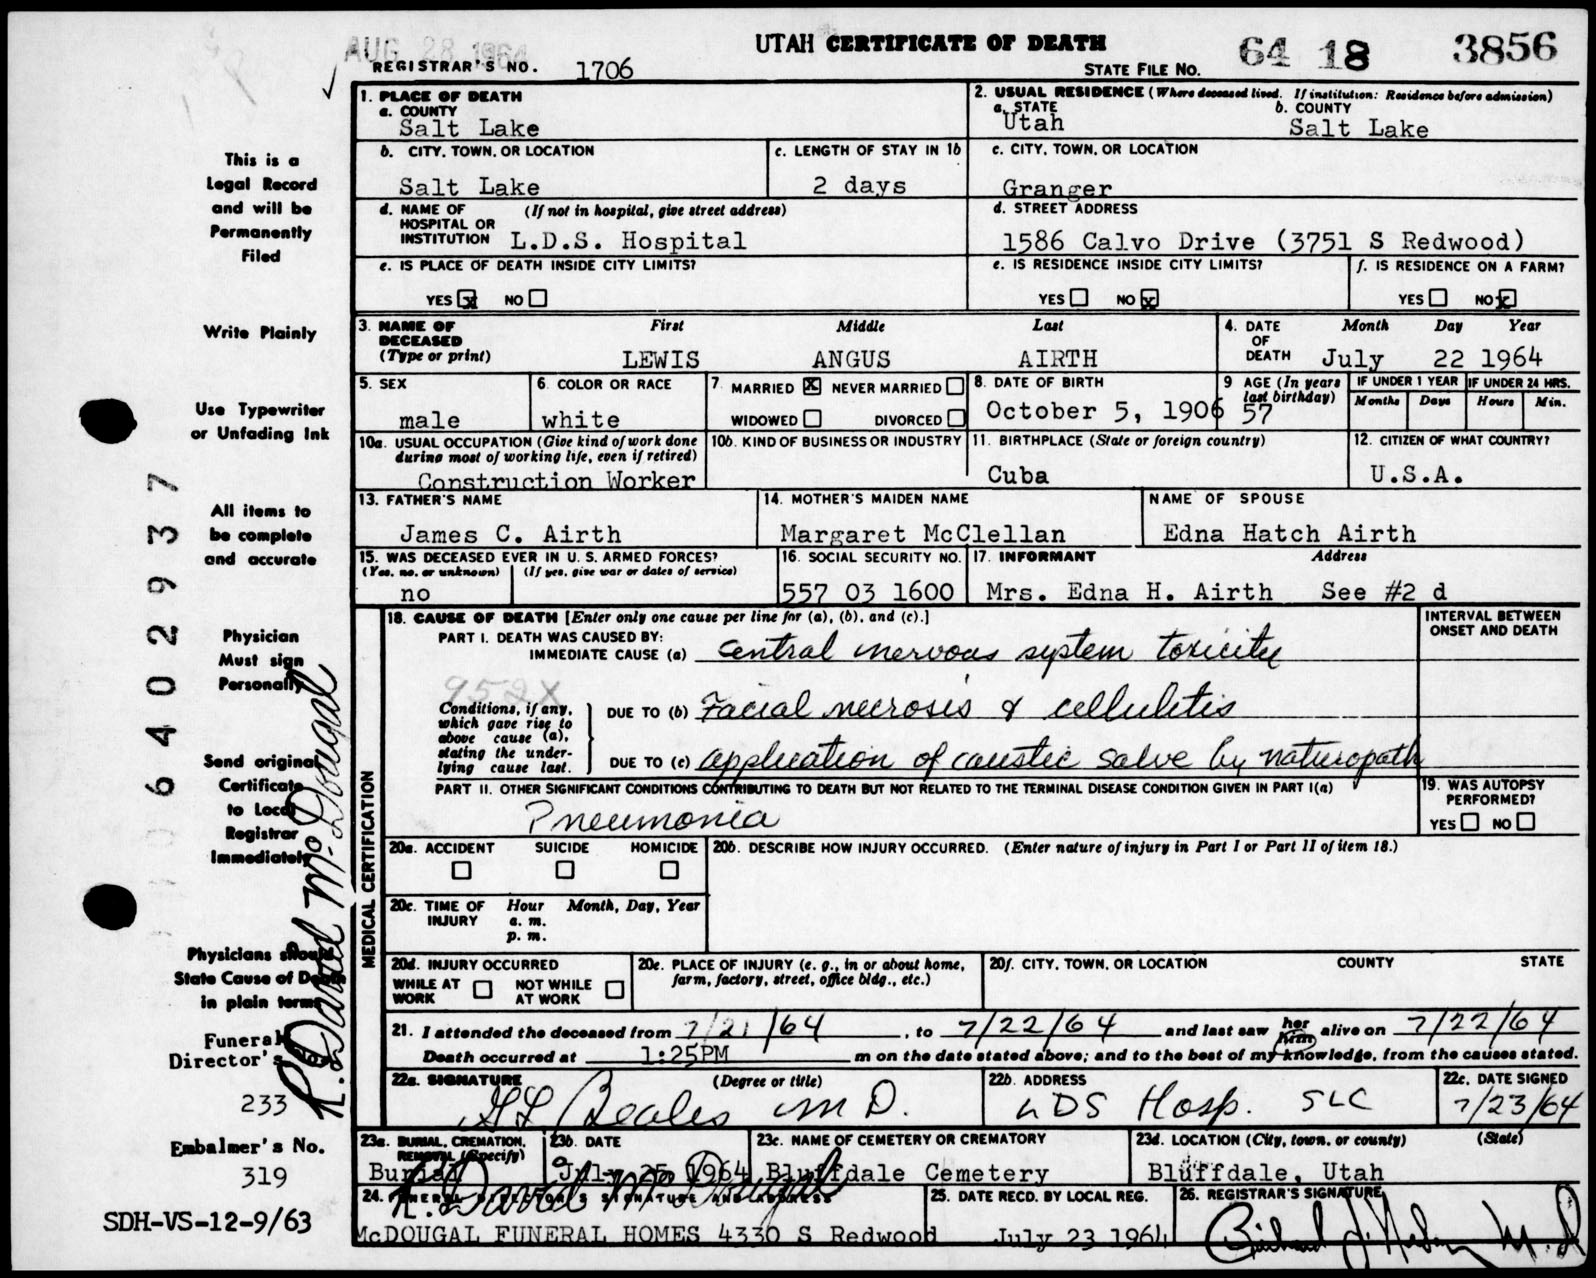 AUG 28 1964
UTAH CERTIFICATE OF DEATH
64 18 3856
REGISTRAR'S NO. 1706
STATE FILE NO.
1. PLACE OF DEATH
a. COUNTY
Salt Lake
2. USUAL RESIDENCE (Where deceased lived. If institution: Residence before admission)
a. STATE b. COUNTY
Utah Salt Lake
b. CITY, TOWN, OR LOCATION
Salt Lake
c. LENGTH OF STAY IN 1b
2 days
c. CITY, TOWN, OR LOCATION
Granger
d. NAME OF HOSPITAL OR INSTITUTION (If not in hospital, give street address)
L.D.S. Hospital
d. STREET ADDRESS
1586 Calvo Drive (3751 S Redwood)
e. IS PLACE OF DEATH INSIDE CITY LIMITS?
YES x NO
e. IS RESIDENCE INSIDE CITY LIMITS?
YES NO x
f. IS RESIDENCE ON A FARM?
YES NO x
3. NAME OF DECEASED (Type or print)
First Middle Last
LEWIS ANGUS AIRTH
4. DATE OF DEATH
Month Day Year
July 22 1964
5. SEX
male
6. COLOR OR RACE
white
7. MARRIED x NEVER MARRIED
WIDOWED DIVORCED
8. DATE OF BIRTH
October 5, 1906
9 AGE (In years last birthday)
57
IF UNDER 1 YEAR
Months Days
IF UNDER 24 HRS.
Hours Min.
10a. USUAL OCCUPATION (Give kind of work done during most of working life, even if retired)
Construction Worker
10b. KIND OF BUSINESS OR INDUSTRY
11. BIRTHPLACE (State or foreign country)
Cuba
12. CITIZEN OF WHAT COUNTRY?
U.S.A.
13. FATHER'S NAME
James C. Airth
14. MOTHER'S MAIDEN NAME
Margaret McClellan
NAME OF SPOUSE
Edna Hatch Airth
15. WAS DECEASED EVER IN U. S. ARMED FORCES?
(Yes, no, or unknown) (If yes, give war or dates of service)
no
16. SOCIAL SECURITY NO.
557 03 1600
17. INFORMANT Address
Mrs. Edna H. Airth See #2 d
MEDICAL CERTIFICATION
18. CAUSE OF DEATH [Enter only one cause per line for (a), (b), and (c).]
INTERVAL BETWEEN ONSET AND DEATH
PART I. DEATH WAS CAUSED BY:
IMMEDIATE CAUSE (a) central nervous system toxicity
952X
Conditions, if any, which gave rise to above cause (a), stating the underlying cause last.
DUE TO (b) Facial necrosis & cellulitis
DUE TO (c) application of caustic salve by naturopath
PART II. OTHER SIGNIFICANT CONDITIONS CONTRIBUTING TO DEATH BUT NOT RELATED TO THE TERMINAL DISEASE CONDITION GIVEN IN PART I(a)
Pneumonia
19. WAS AUTOPSY PERFORMED?
YES NO
20a. ACCIDENT SUICIDE HOMICIDE
20b. DESCRIBE HOW INJURY OCCURRED. (Enter nature of injury in Part I or Part II of item 18.)
20c. TIME OF INJURY Hour Month, Day, Year
a. m.
p. m.
20d. INJURY OCCURRED
WHILE AT WORK NOT WHILE AT WORK
20e. PLACE OF INJURY (e. g., in or about home, farm, factory, street, office bldg., etc.)
20f. CITY, TOWN, OR LOCATION COUNTY STATE
21. I attended the deceased from 7/21/64, to 7/22/64 and last saw her him alive on 7/22/64
Death occurred at 1:25PM m on the date stated above; and to the best of my knowledge, from the causes stated.
22a. SIGNATURE (Degree or title)
GL Beales MD.
22b. ADDRESS
LDS Hosp. SLC
22c. DATE SIGNED
7/23/64
23a. BURIAL, CREMATION, REMOVAL (Specify)
Burial
23b. DATE
July 25 1964
23c. NAME OF CEMETERY OR CREMATORY
Bluffdale Cemetery
23d. LOCATION (City, town, or county) (State)
Bluffdale, Utah
24. FUNERAL DIRECTOR'S SIGNATURE AND ADDRESS
R. David McDougal
McDOUGAL FUNERAL HOMES 4330 S Redwood
25. DATE RECD. BY LOCAL REG.
July 23 1964
26. REGISTRAR'S SIGNATURE
This is a
Legal Record
and will be
Permanently
Filed
Write Plainly
Use Typewriter
or Unfading Ink
All items to
be complete
and accurate
Physician
Must sign
Personally
Send original
Certificate
to Local
Registrar
Immediately
Physicians should
State Cause of Death
in plain terms
Funeral
Director's No.
233
Embalmer's No.
319
SDH-VS-12-9/63
06402937
R. David McDougal